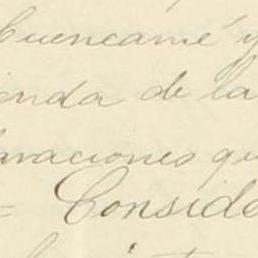 Cuencamé y
enda de la
laraciones qu
= Conside